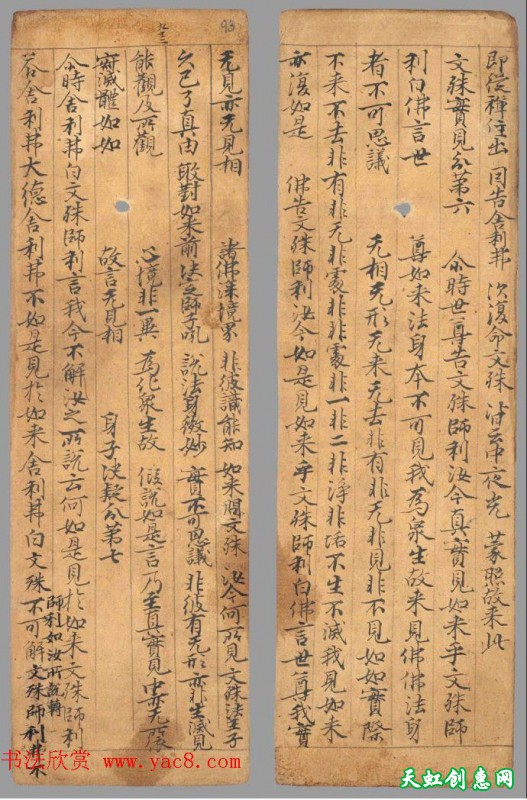 即從禪住出 因告舍利弗 次復命文殊 中夜光 蒙照故來此
文殊實見分第六 尒時世尊告文殊師利汝今真實見如來乎文殊師
利白佛言世 尊如來法身本不可見我為衆生故來見佛佛法身
者不可思議 无相无形无來无去非有非无非見非不見如如實際
不來不去非有非无非處非非處非一非二非淨非垢不生不滅我見如來
亦復如是 佛告文殊師利汝今如是見如來乎文殊師利白佛言世尊我實
93
九三
无見亦无見相 諸佛深境界 非彼識能知 如來問文殊 汝今何所見 文殊法王子
久已了真由 敢對如來前 決定師子吼 說法身微妙 實不可思議 非彼有无形 亦非生滅見
能觀及所觀 心境非一異 為化衆生故 假說如是言 乃至真實見 中亦无
寂滅體如如 故言无見相 身子決疑分第七
尒時舍利弗白文殊師利言我今不解汝之所說云何如是見於如來文殊師利
答舍利弗大德舍利弗不如是見於如來舍利弗白文殊師利如汝所說轉不可解文殊師利
书法欣赏
www.yac8.com
天虹创惠网